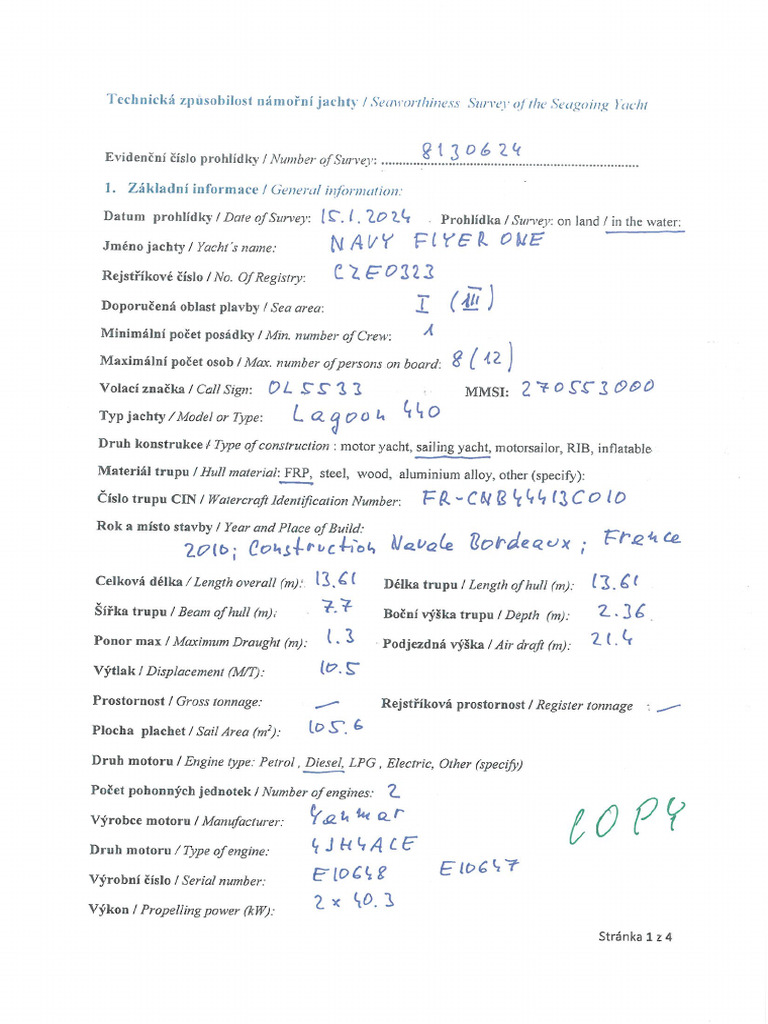 Technická způsobilost námořní jachty / Seaworthiness Survey of the Seagoing Yacht
Evidenční číslo prohlídky / Number of Survey: 8130624
1. Základní informace / General information:
Datum prohlídky / Date of Survey: 15.1.2024 Prohlídka / Survey: on land / in the water:
Jméno jachty / Yacht´s name: NAVY FLYER ONE
Rejstříkové číslo / No. Of Registry: CZE0323
Doporučená oblast plavby / Sea area: I (III)
Minimální počet posádky / Min. number of Crew: 1
Maximální počet osob / Max. number of persons on board: 8 (12)
Volací značka / Call Sign: OL5533 MMSI: 270553000
Typ jachty / Model or Type: Lagoon 440
Druh konstrukce / Type of construction : motor yacht, sailing yacht, motorsailor, RIB, inflatable
Materiál trupu / Hull material: FRP, steel, wood, aluminium alloy, other (specify):
Číslo trupu CIN / Watercraft Identification Number: FR-CNB44413C010
Rok a místo stavby / Year and Place of Build:
2010; Construction Navale Bordeaux; France
Celková délka / Length overall (m): 13.61 Délka trupu / Length of hull (m): 13.61
Šířka trupu / Beam of hull (m): 7.7 Boční výška trupu / Depth (m): 2.36
Ponor max / Maximum Draught (m): 1.3 Podjezdná výška / Air draft (m): 21.4
Výtlak / Displacement (M/T): 10.5
Prostornost / Gross tonnage: — Rejstříková prostornost / Register tonnage : —
Plocha plachet / Sail Area (m²): 105.6
Druh motoru / Engine type: Petrol , Diesel, LPG , Electric, Other (specify)
Počet pohonných jednotek / Number of engines: 2
Výrobce motoru / Manufacturer: Yanmar
Druh motoru / Type of engine: 4JH4ACE
Výrobní číslo / Serial number: E10648 E10647
Výkon / Propelling power (kW): 2 x 40.3
COPY
Stránka 1 z 4